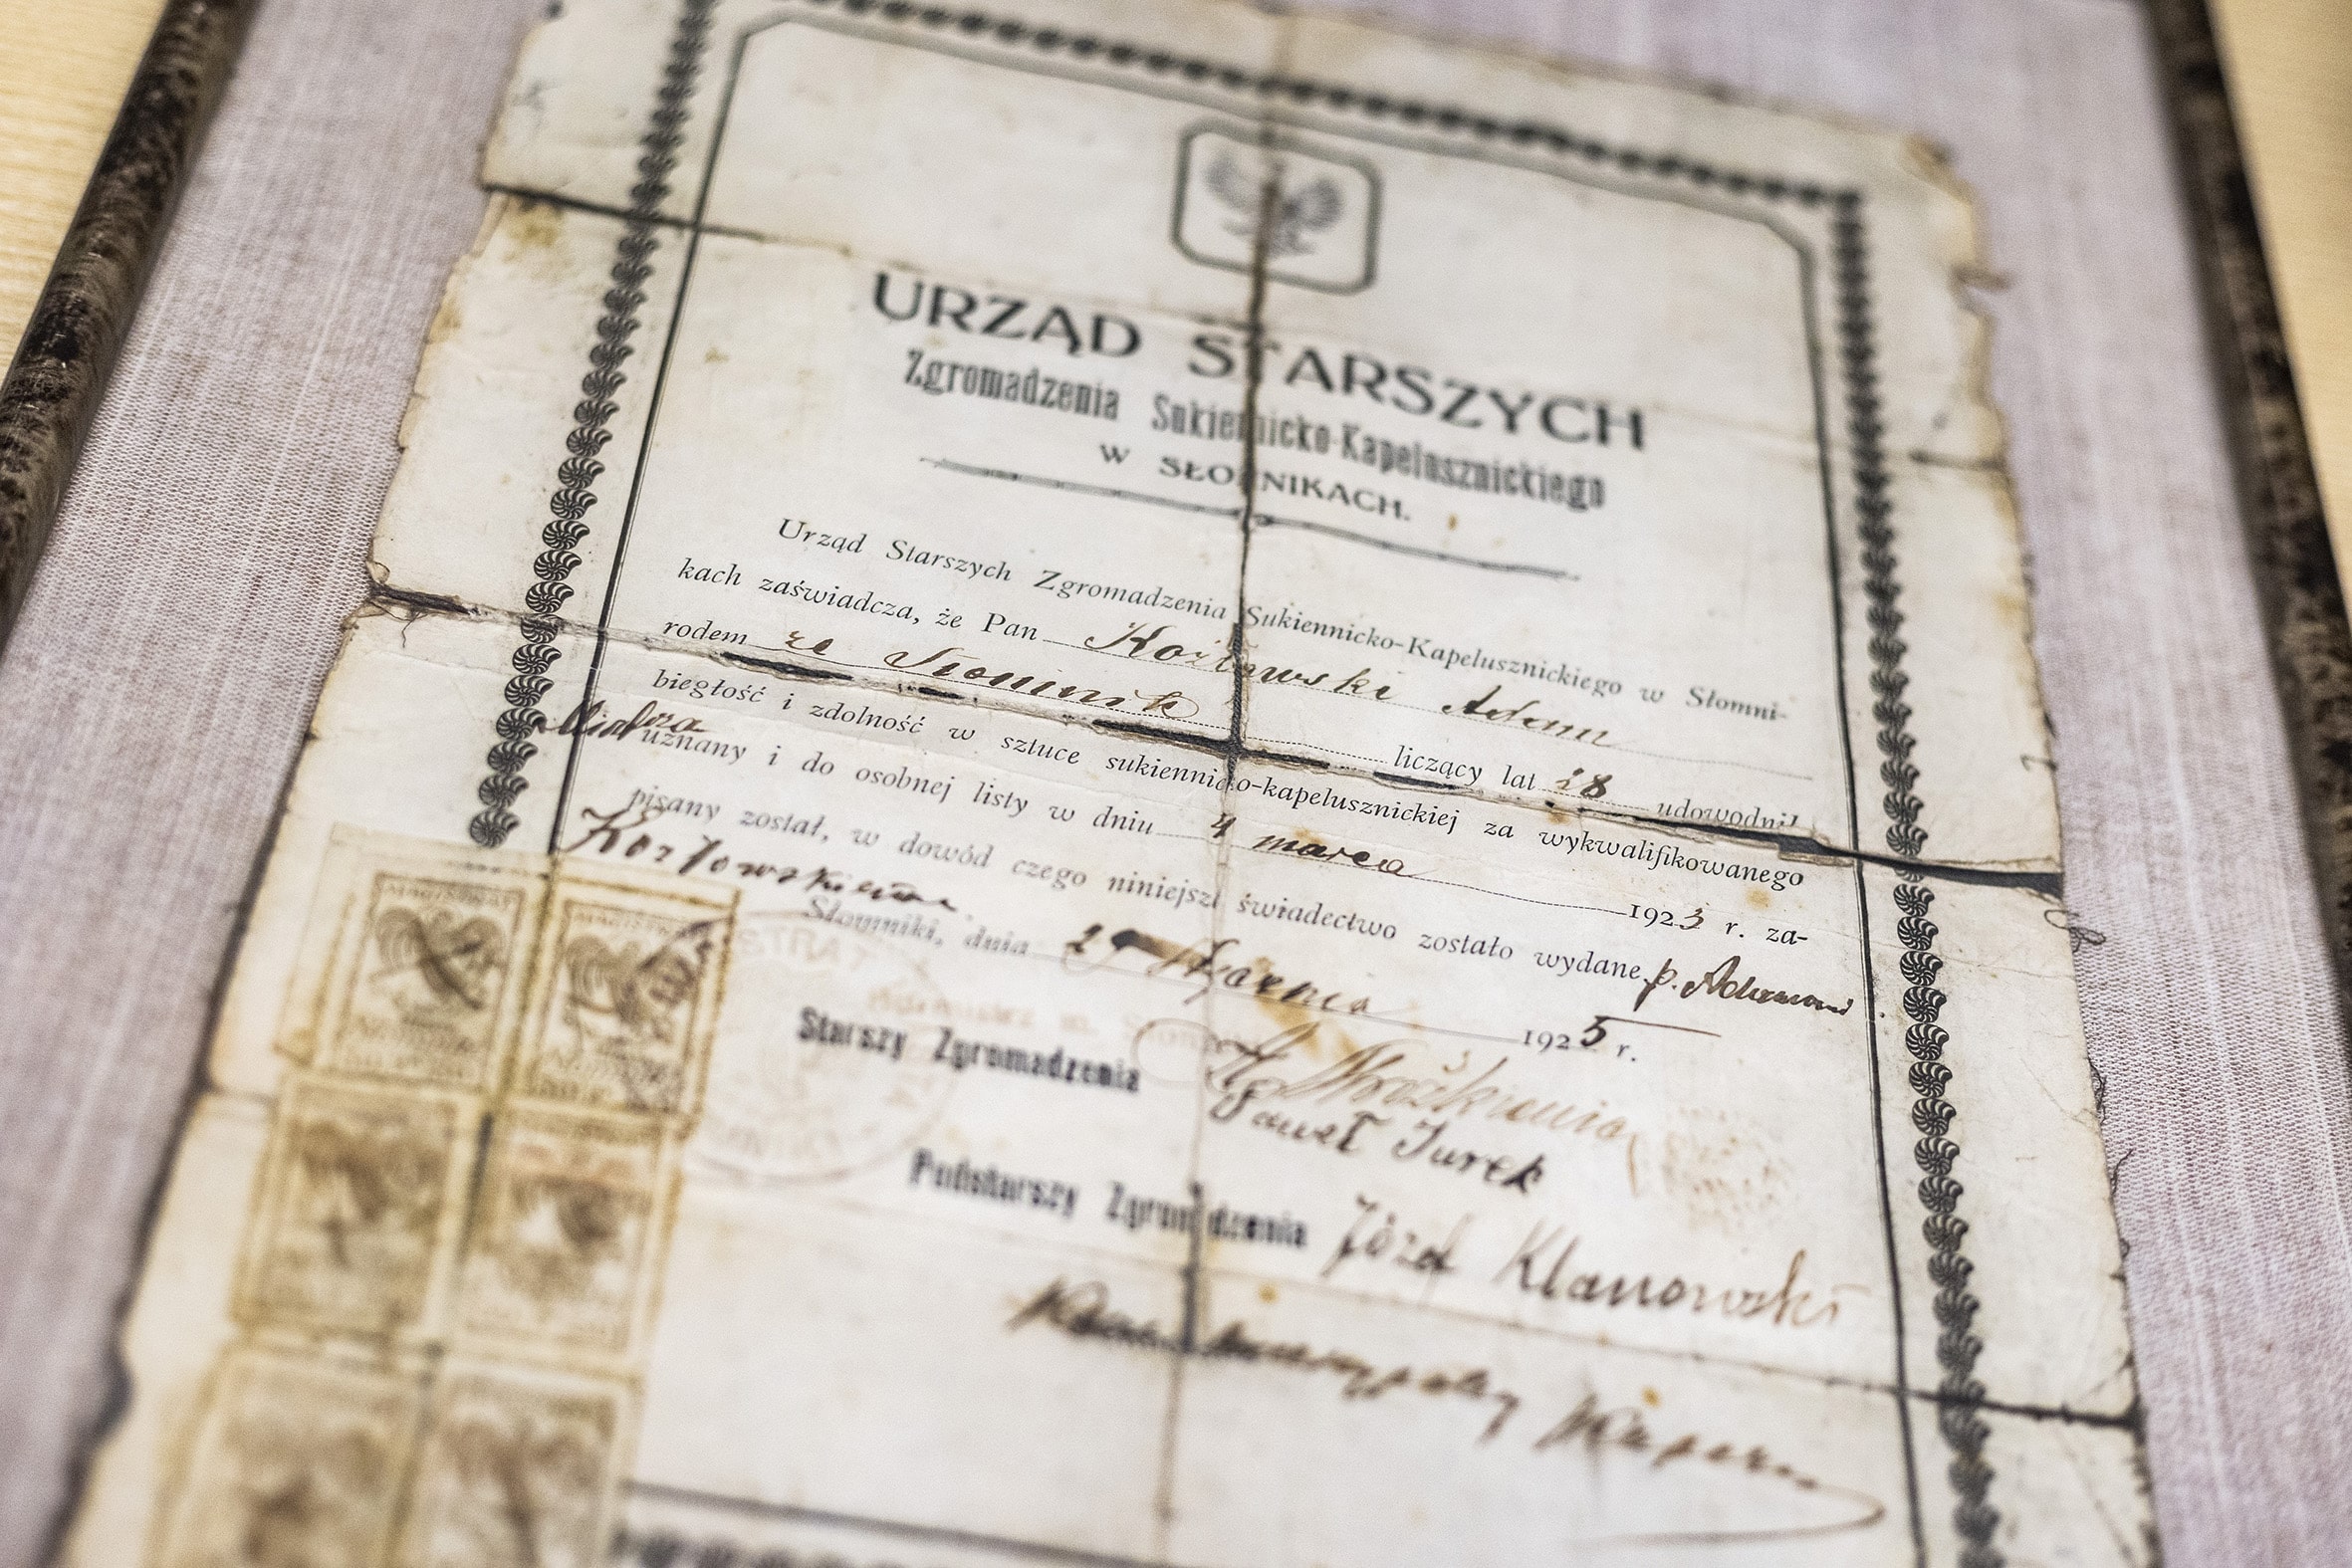 URZĄD STARSZYCH
Zgromadzenia Sukiennicko-Kapelusznickiego
W SŁOMNIKACH.
Urząd Starszych Zgromadzenia Sukiennicko-Kapelusznickiego w Słomni-
kach zaświadcza, że Pan Kozłowski Adam
rodem ze Słomnik liczący lat 28 udowodnił
biegłość i zdolność w sztuce sukiennicko-kapelusznickiej za wykwalifikowanego
uznany i do osobnej listy w dniu 4 marca 1923 r. za-
pisany został, w dowód czego niniejsze świadectwo zostało wydane p. Adamowi
Kozłowskiemu.
Słomniki, dnia 29 stycznia 1925 r.
Starszy Zgromadzenia
Paweł Jurek
Podstarszy Zgromadzenia Józef Klanowski